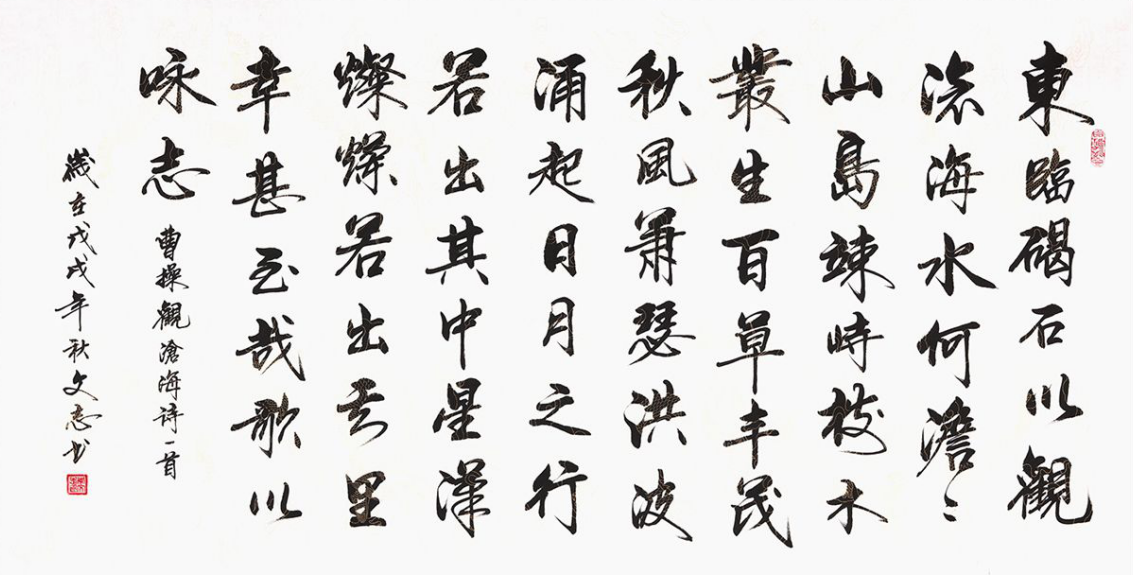 東臨碣石以觀
滄海水何澹〻
山島竦峙樹木
叢生百草丰茂
秋風蕭瑟洪波
涌起日月之行
若出其中星漢
燦爛若出其里
幸甚至哉歌以
咏志
曹操觀滄海诗一首
歲在戊戌年秋文志书